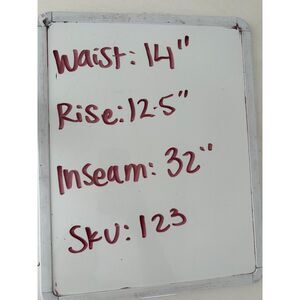 Waist: 14"
Rise: 12.5"
Inseam: 32"
SKU: 123